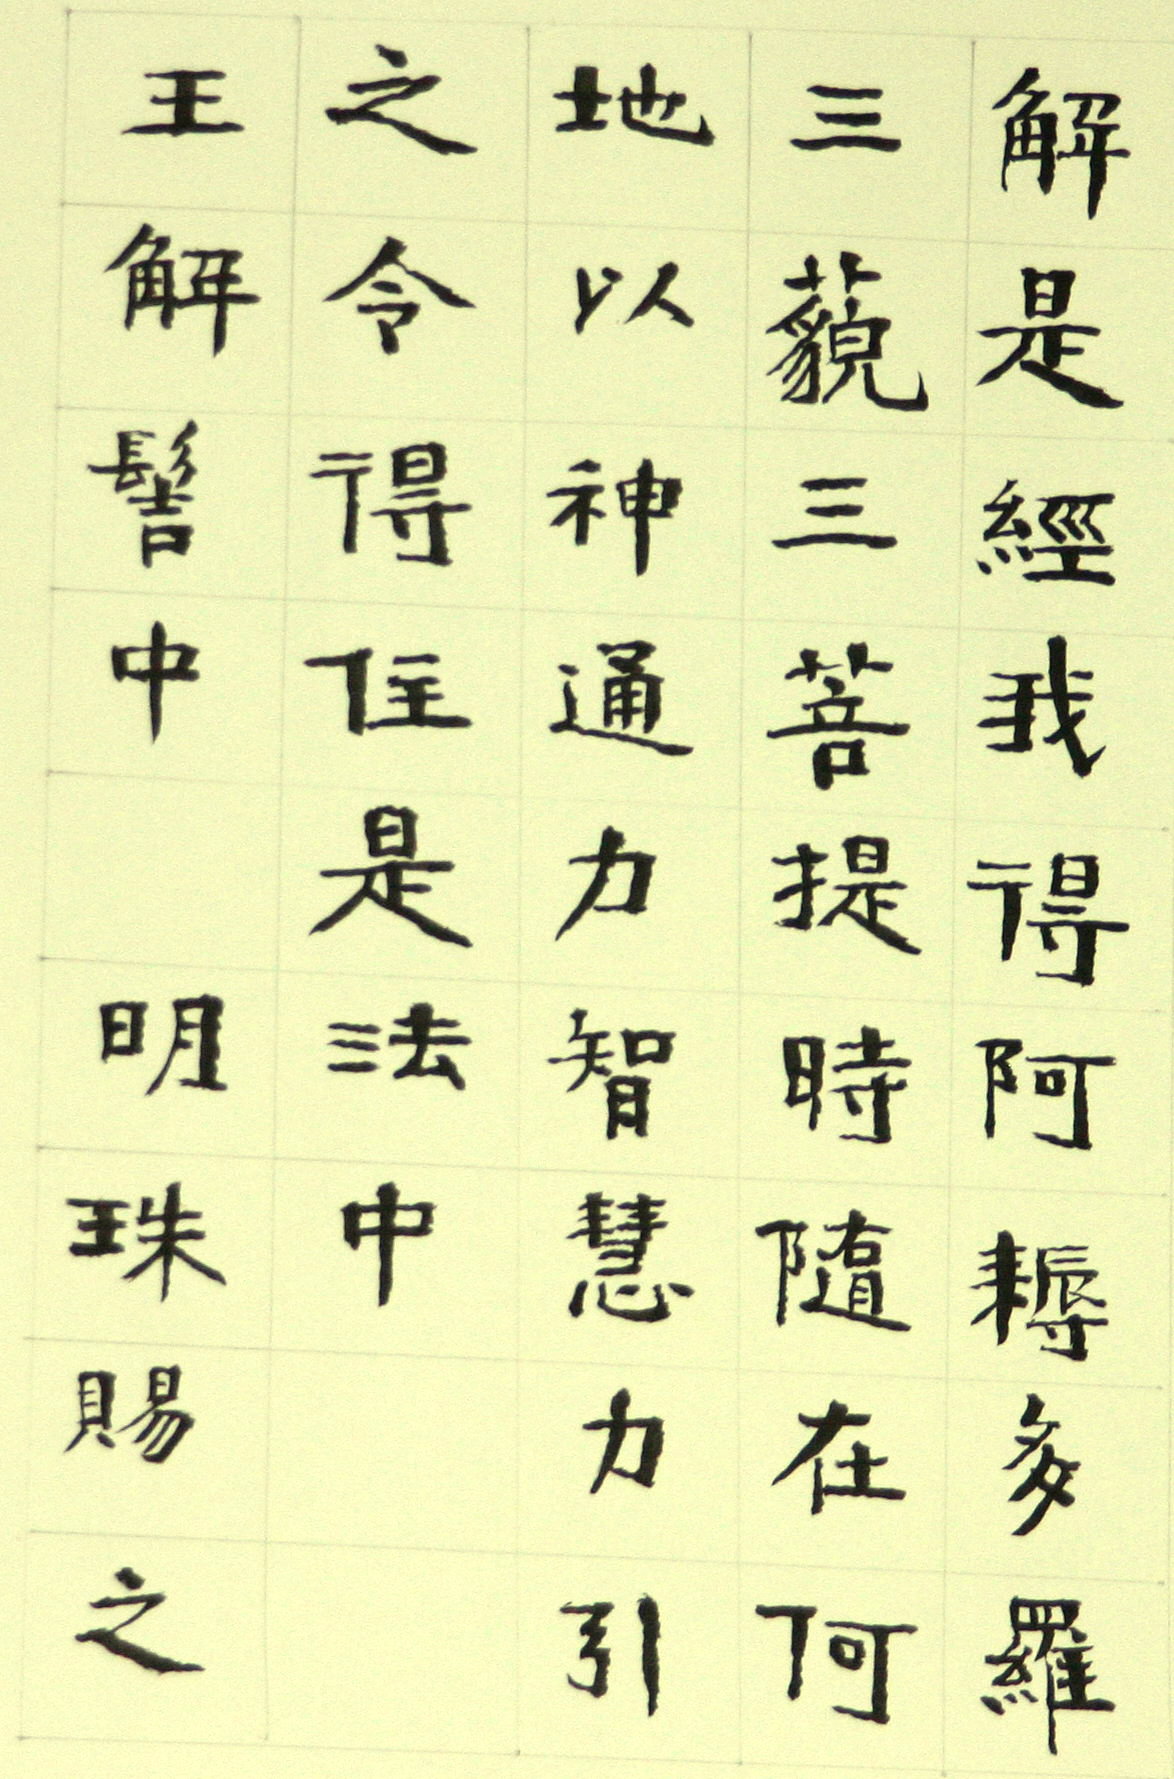 解是經我得阿耨多羅
三藐三菩提時隨在何
地以神通力智慧力引
之令得住是法中
王解髻中 明珠賜之